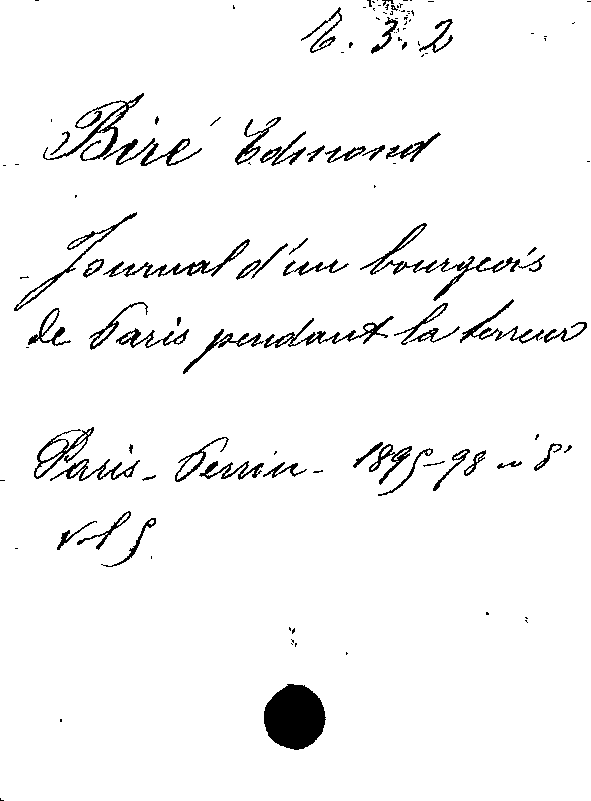 E. 3. 2
Biré Edmond
Journal d'un bourgeois
de Paris pendant la terreur
Paris - Perrin - 1895-98 in 8°
vol 5